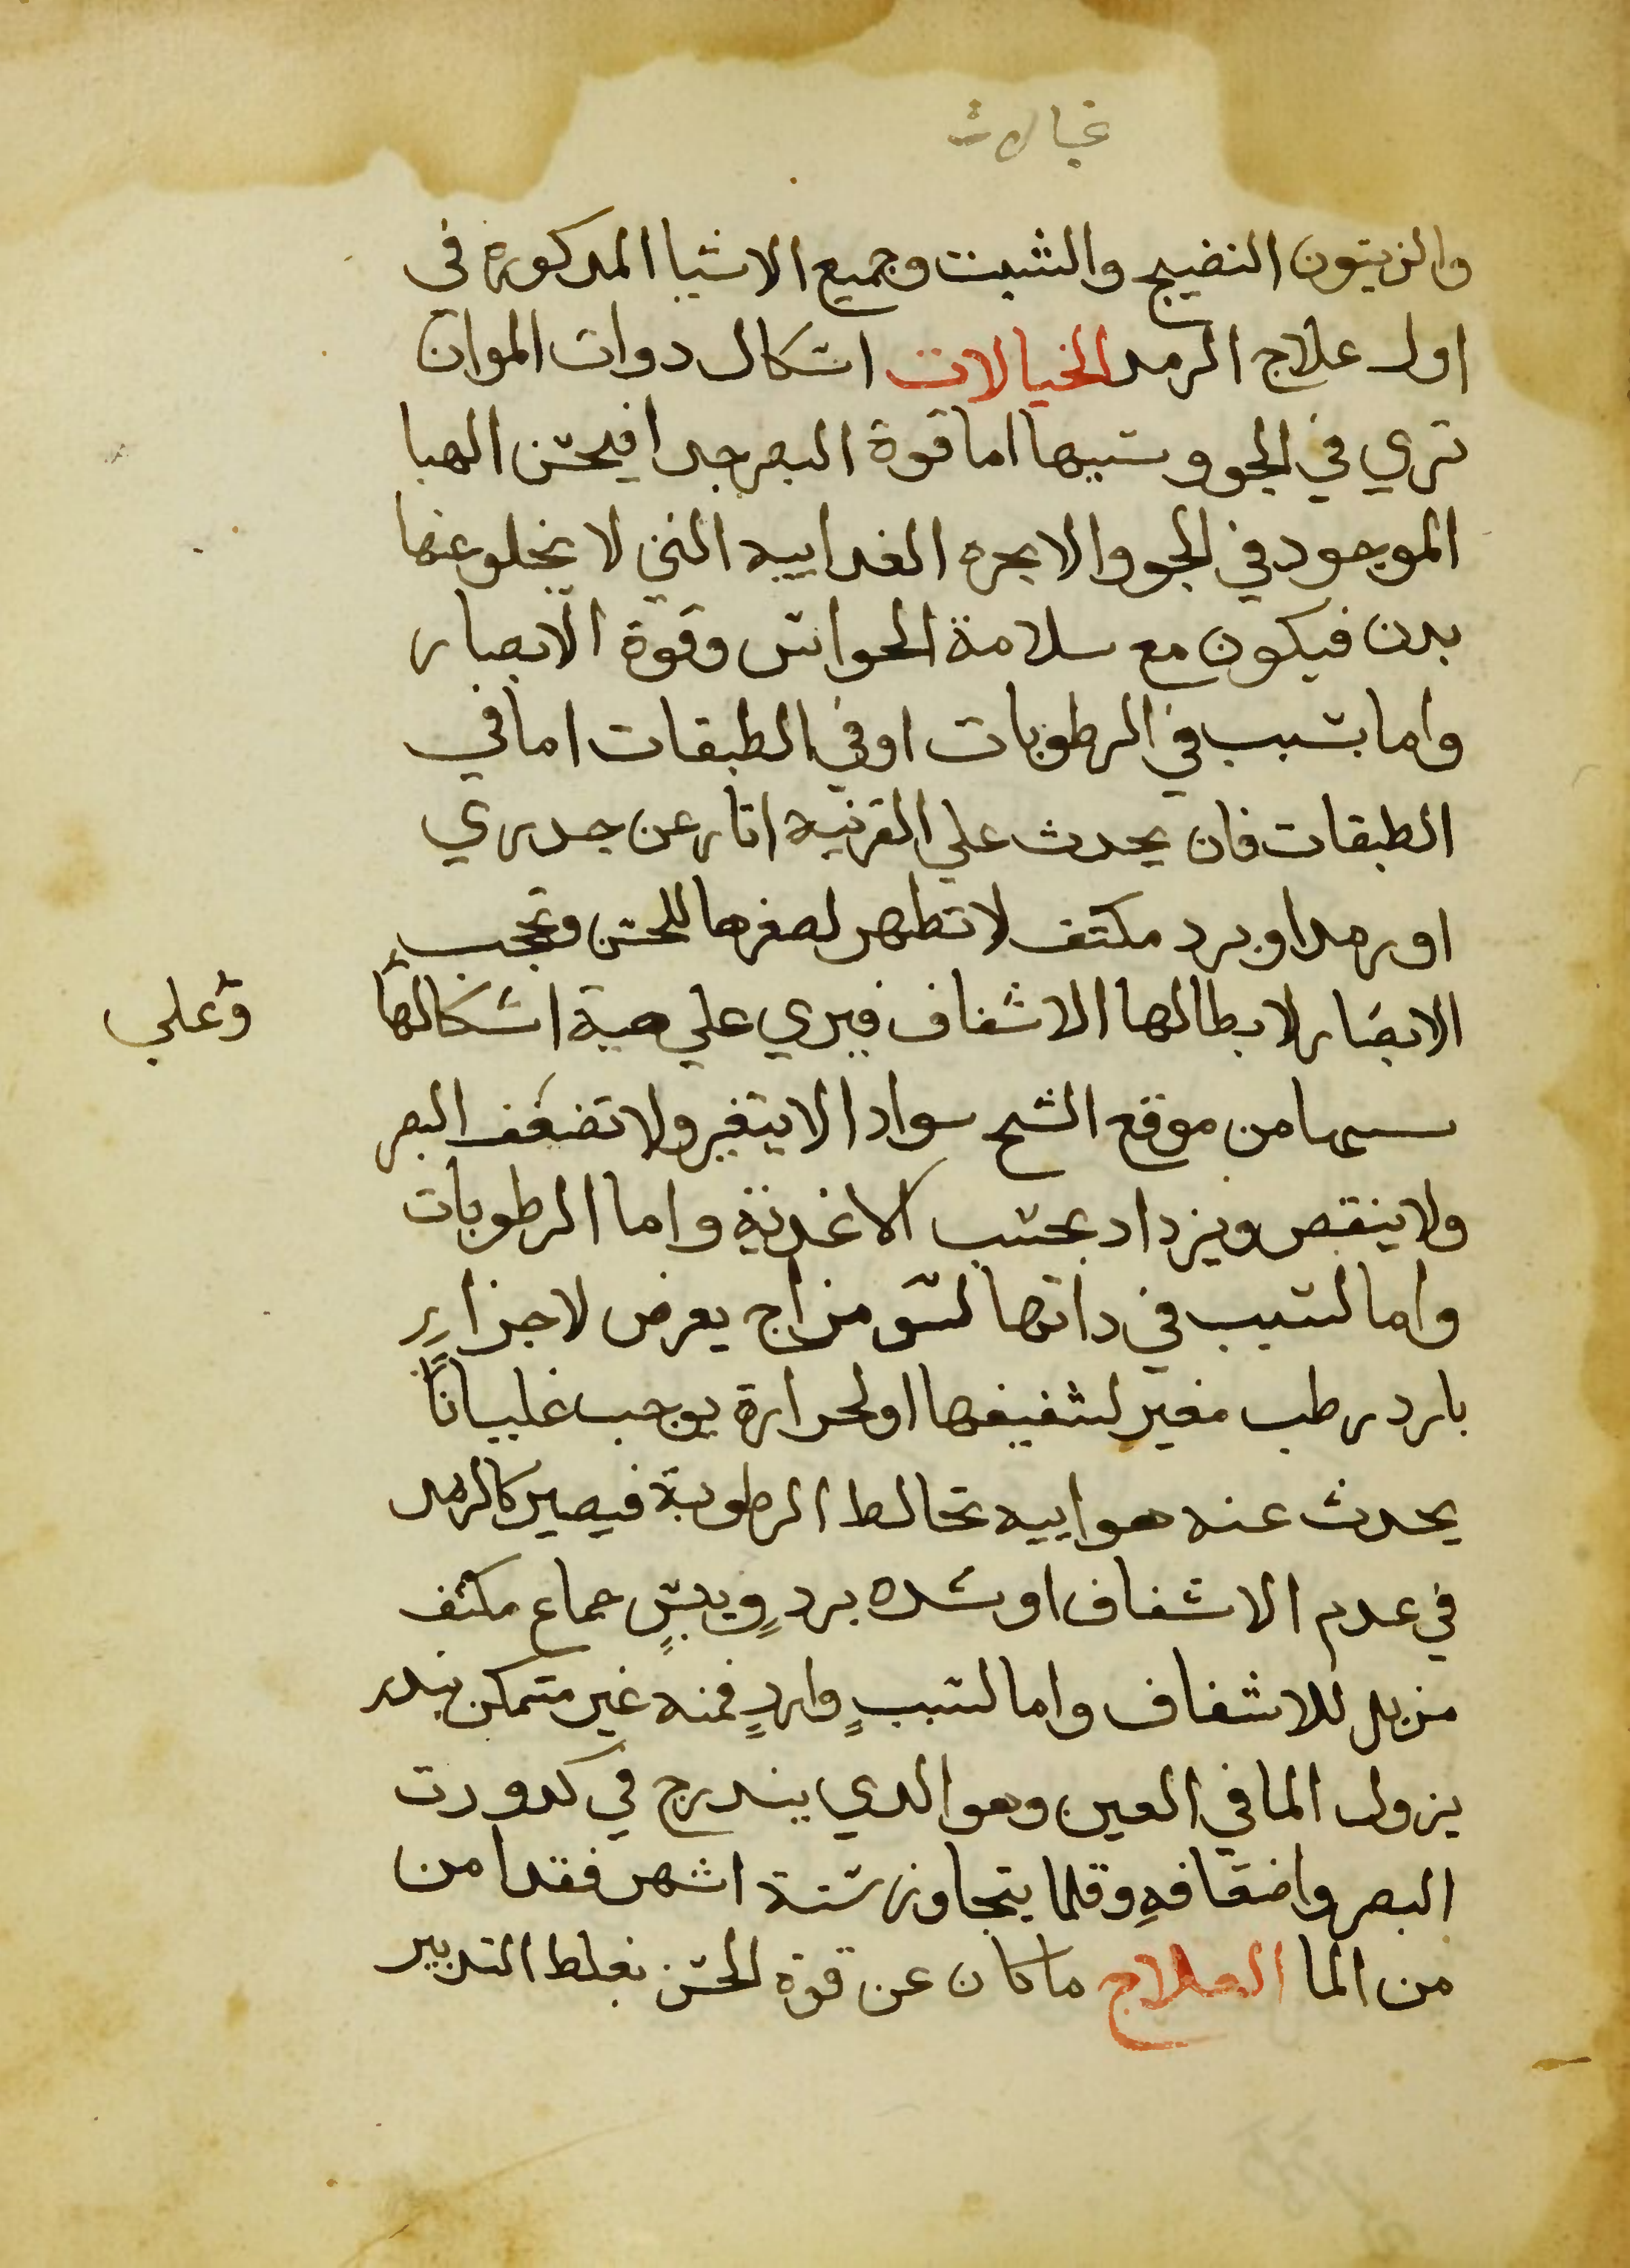 خيالات
والزيتون النضيج والشبت وجميع الاشيا المدكورة في
اول علاج الرمد الخيالات اشكال دوات الموان
تري في الجو وسببها اما قوة البصر جدا فيحس الهبا
الموجود في الجو والابخره الغداييه التي لا يخلو عنها
بدن فيكون مع سلامة الحواس وقوة الابصار
واما بسبب في الرطوبات اوفي الطبقات اما في
الطبقات فان يحدث علي القرنيه اتار عن جدري
او رمد او برد مكتف لا تطهر لصغرها للحس وتحجب
الابصار لابطالها الاشفاف فيري علي هية اشكالها
وعلي
سيما من موقع الشبح سوادا لا يتغير ولا تضعف البصر
ولا ينقص ويزداد بحسب الاغدية واما الرطوبات
واما لسبب في داتها لسو مزاج يعرض لاجزاء
بارد رطب مغير لشفيفها او لحرارة يوجب غلياناً
يحدث عنه هواييه تخالط الرطوبة فيصير كالزبد
في عدم الاشفاف او شده بردٍ ويبسٍ جماع مكثف
مزيل للاشفاف واما لسببٍ واردٍ فمنه غير متمكن
يزول الما في العين وهو الدي يندرج في كدورت
البصر واضعافهِ وقلما يتجاوز ستة اشهر فقد امن
من الما العلاج ما كان عن قوة الحس بغلط التدبير